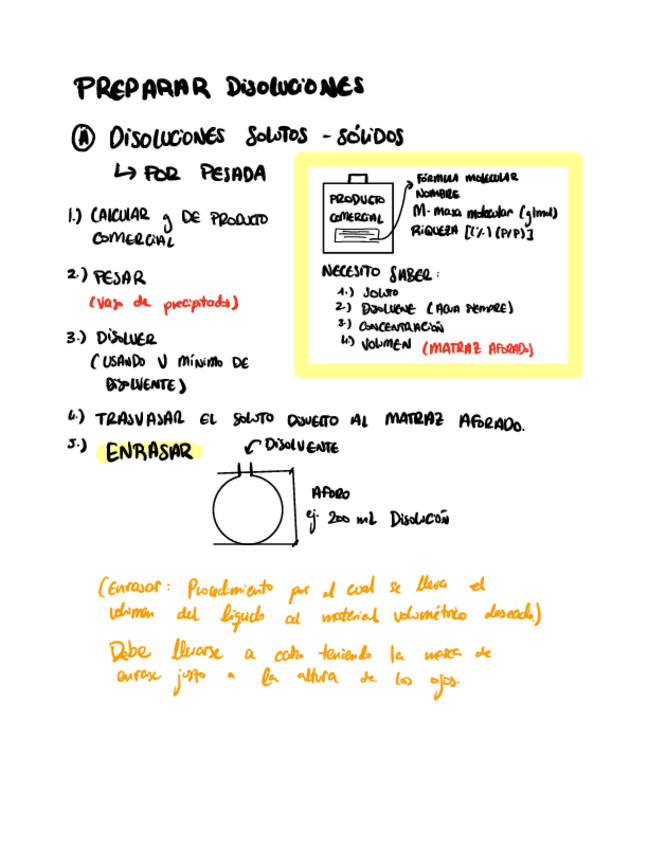 PREPARAR DISOLUCIONES
Ⓐ DISOLUCIONES SOLUTOS - SÓLIDOS
↳ POR PESADA
1.) CALCULAR g DE PRODUCTO
COMERCIAL
2.) PESAR
(Vaso de precipitados)
3.) DISOLVER
(USANDO V MÍNIMO DE
DISOLVENTE)
PRODUCTO
COMERCIAL
FÓRMULA MOLECULAR
NOMBRE
M- masa molecular (g/mol)
RIQUEZA [(%) (P/P)]
NECESITO SABER:
1.) SOLUTO
2.) DISOLVENTE (AGUA SIEMPRE)
3.) CONCENTRACIÓN
4.) VOLUMEN (MATRAZ AFORADO)
4.) TRASVASAR EL SOLUTO DISUELTO AL MATRAZ AFORADO.
5.) ENRASAR
DISOLVENTE
AFORO
ej. 200 mL DISOLUCIÓN
(Enrasar: Procedimiento por el cual se lleva el
volumen del líquido al material volumétrico deseado)
Debe llevarse a cabo teniendo la marca de
enrase justo a la altura de los ojos.